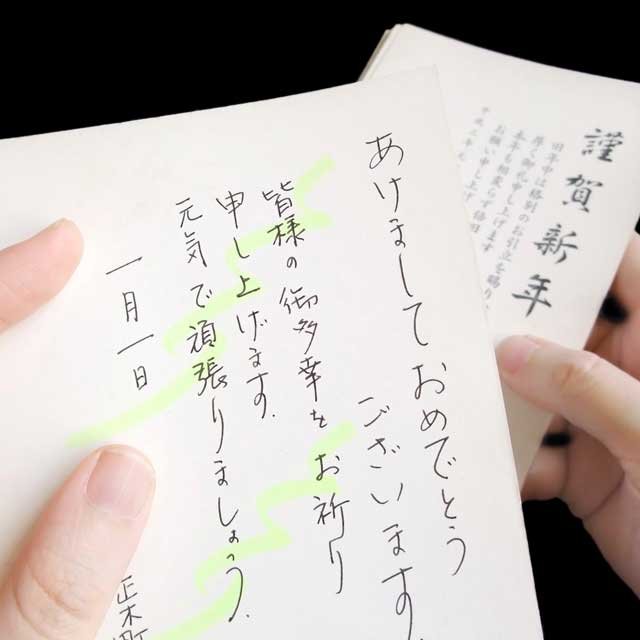 謹賀新年
旧年中は格別のお引立を賜り
厚く御礼申し上げます
本年も相変らず倍旧
お願い申し上げ
平成二十
あけまして おめでとう
ございます
皆様の御多幸を お祈り
申し上げます.
元気で頑張りましょう.
一月一日
正木町